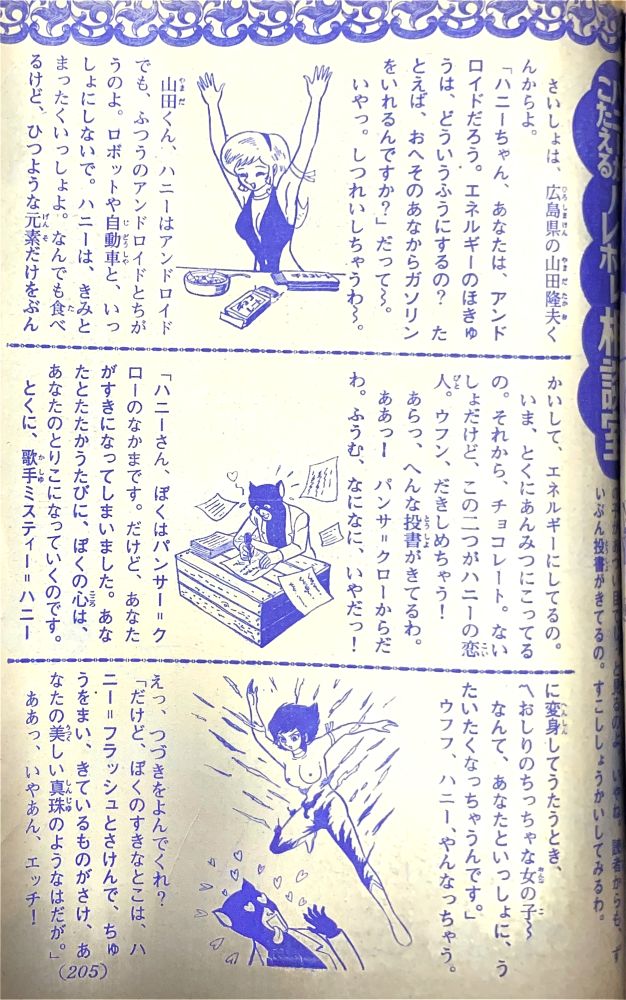 こたえるハレホレ相談室
いぶん投書がきてるの。すこししょうかいしてみるわ。
さいしょは、広島県の山田隆夫く
んからよ。
「ハニーちゃん、あなたは、アンド
ロイドだろう。エネルギーのほきゅ
うは、どういうふうにするの？　た
とえば、おへそのあなからガソリン
をいれるんですか？」だって〜。
いやっ。しつれいしちゃうわ〜。
山田くん、ハニーはアンドロイド
でも、ふつうのアンドロイドとちが
うのよ。ロボットや自動車と、いっ
しょにしないで。ハニーは、きみと
まったくいっしょよ。なんでも食べ
るけど、ひつような元素だけをぶん
かいして、エネルギーにしてるの。
いま、とくにあんみつにこってる
の。それから、チョコレート。ない
しょだけど、この二つがハニーの恋
人。ウフン、だきしめちゃう！
あらっ、へんな投書がきてるわ。
ああっ！　パンサ＝クローからだ
わ。ふうむ、なになに、いやだっ！
「ハニーさん、ぼくはパンサー＝ク
ローのなかまです。だけど、あなた
がすきになってしまいました。あな
たとたたかうたびに、ぼくの心は、
あなたのとりこになっていくのです。
とくに、歌手ミスティー＝ハニー
に変身してうたうとき、
〽おしりのちっちゃな女の子〜
なんて、あなたといっしょに、う
たいたくなっちゃうんです。」
ウフフ、ハニー、やんなっちゃう。
えっ、つづきをよんでくれ？
「だけど、ぼくのすきなとこは、ハ
ニー＝フラッシュとさけんで、ちゅ
うをまい、きているものがさけ、あ
なたの美しい真珠のようなはだが。」
ああっ、いやあん、エッチ！
(205)